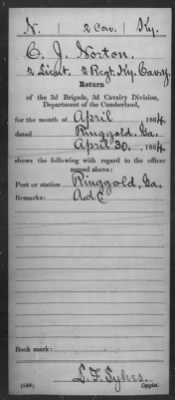 N. | 2 Cav. | Ky.
C. J. Norton.
2 Lieut. 2 Regt. Ky. Cavry.
Return
of the 3d Brigade, 3d Cavalry Division,
Department of the Cumberland,
for the month of April 1864.
dated Ringgold, Ga.
April 30, 1864
shows the following with regard to the officer
named above:
Post or station Ringgold, Ga.
Remarks: AdC
Book mark:
L. F. Sykes.
(546) Copyist.